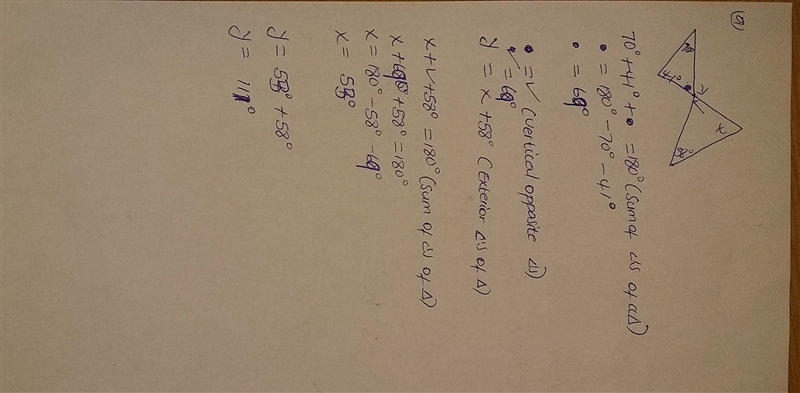 (a)
70°
41°
y
x
58°
70° + 41° + • = 180° (sum of ∠s of a Δ)
• = 180° - 70° - 41°
• = 69°
• = ✓ (vertical opposite ∠s)
✓ = 69°
y = x + 58° (Exterior ∠s of Δ)
x + ✓ + 58° = 180° (sum of ∠s of Δ)
x + 69° + 58° = 180°
x = 180° - 58° - 69°
x = 53°
y = 53° + 58°
y = 111°